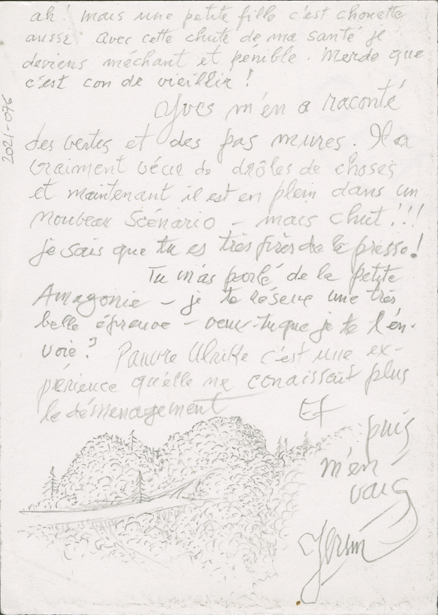 ah! mais une petite fille c'est chouette
aussi avec cette chute de ma santé je
deviens méchant et pénible. Merde que
c'est con de vieillir!
Yves m'en a raconté
des vertes et des pas mures. Il a
vraiment vécu de drôles de choses
et maintenant il est en plein dans un
nouveau Scénario – mais chut!!!
je sais que tu es très près de la presse!
Tu m'as parlé de la petite
– je te réserve une très
belle épreuve – veux-tu que je te l'en-
voie? Pauvre Ulrike c'est une ex-
périence qu'elle ne conaissait plus
le déménagement
Et
puis
m'en
vais
2021-076